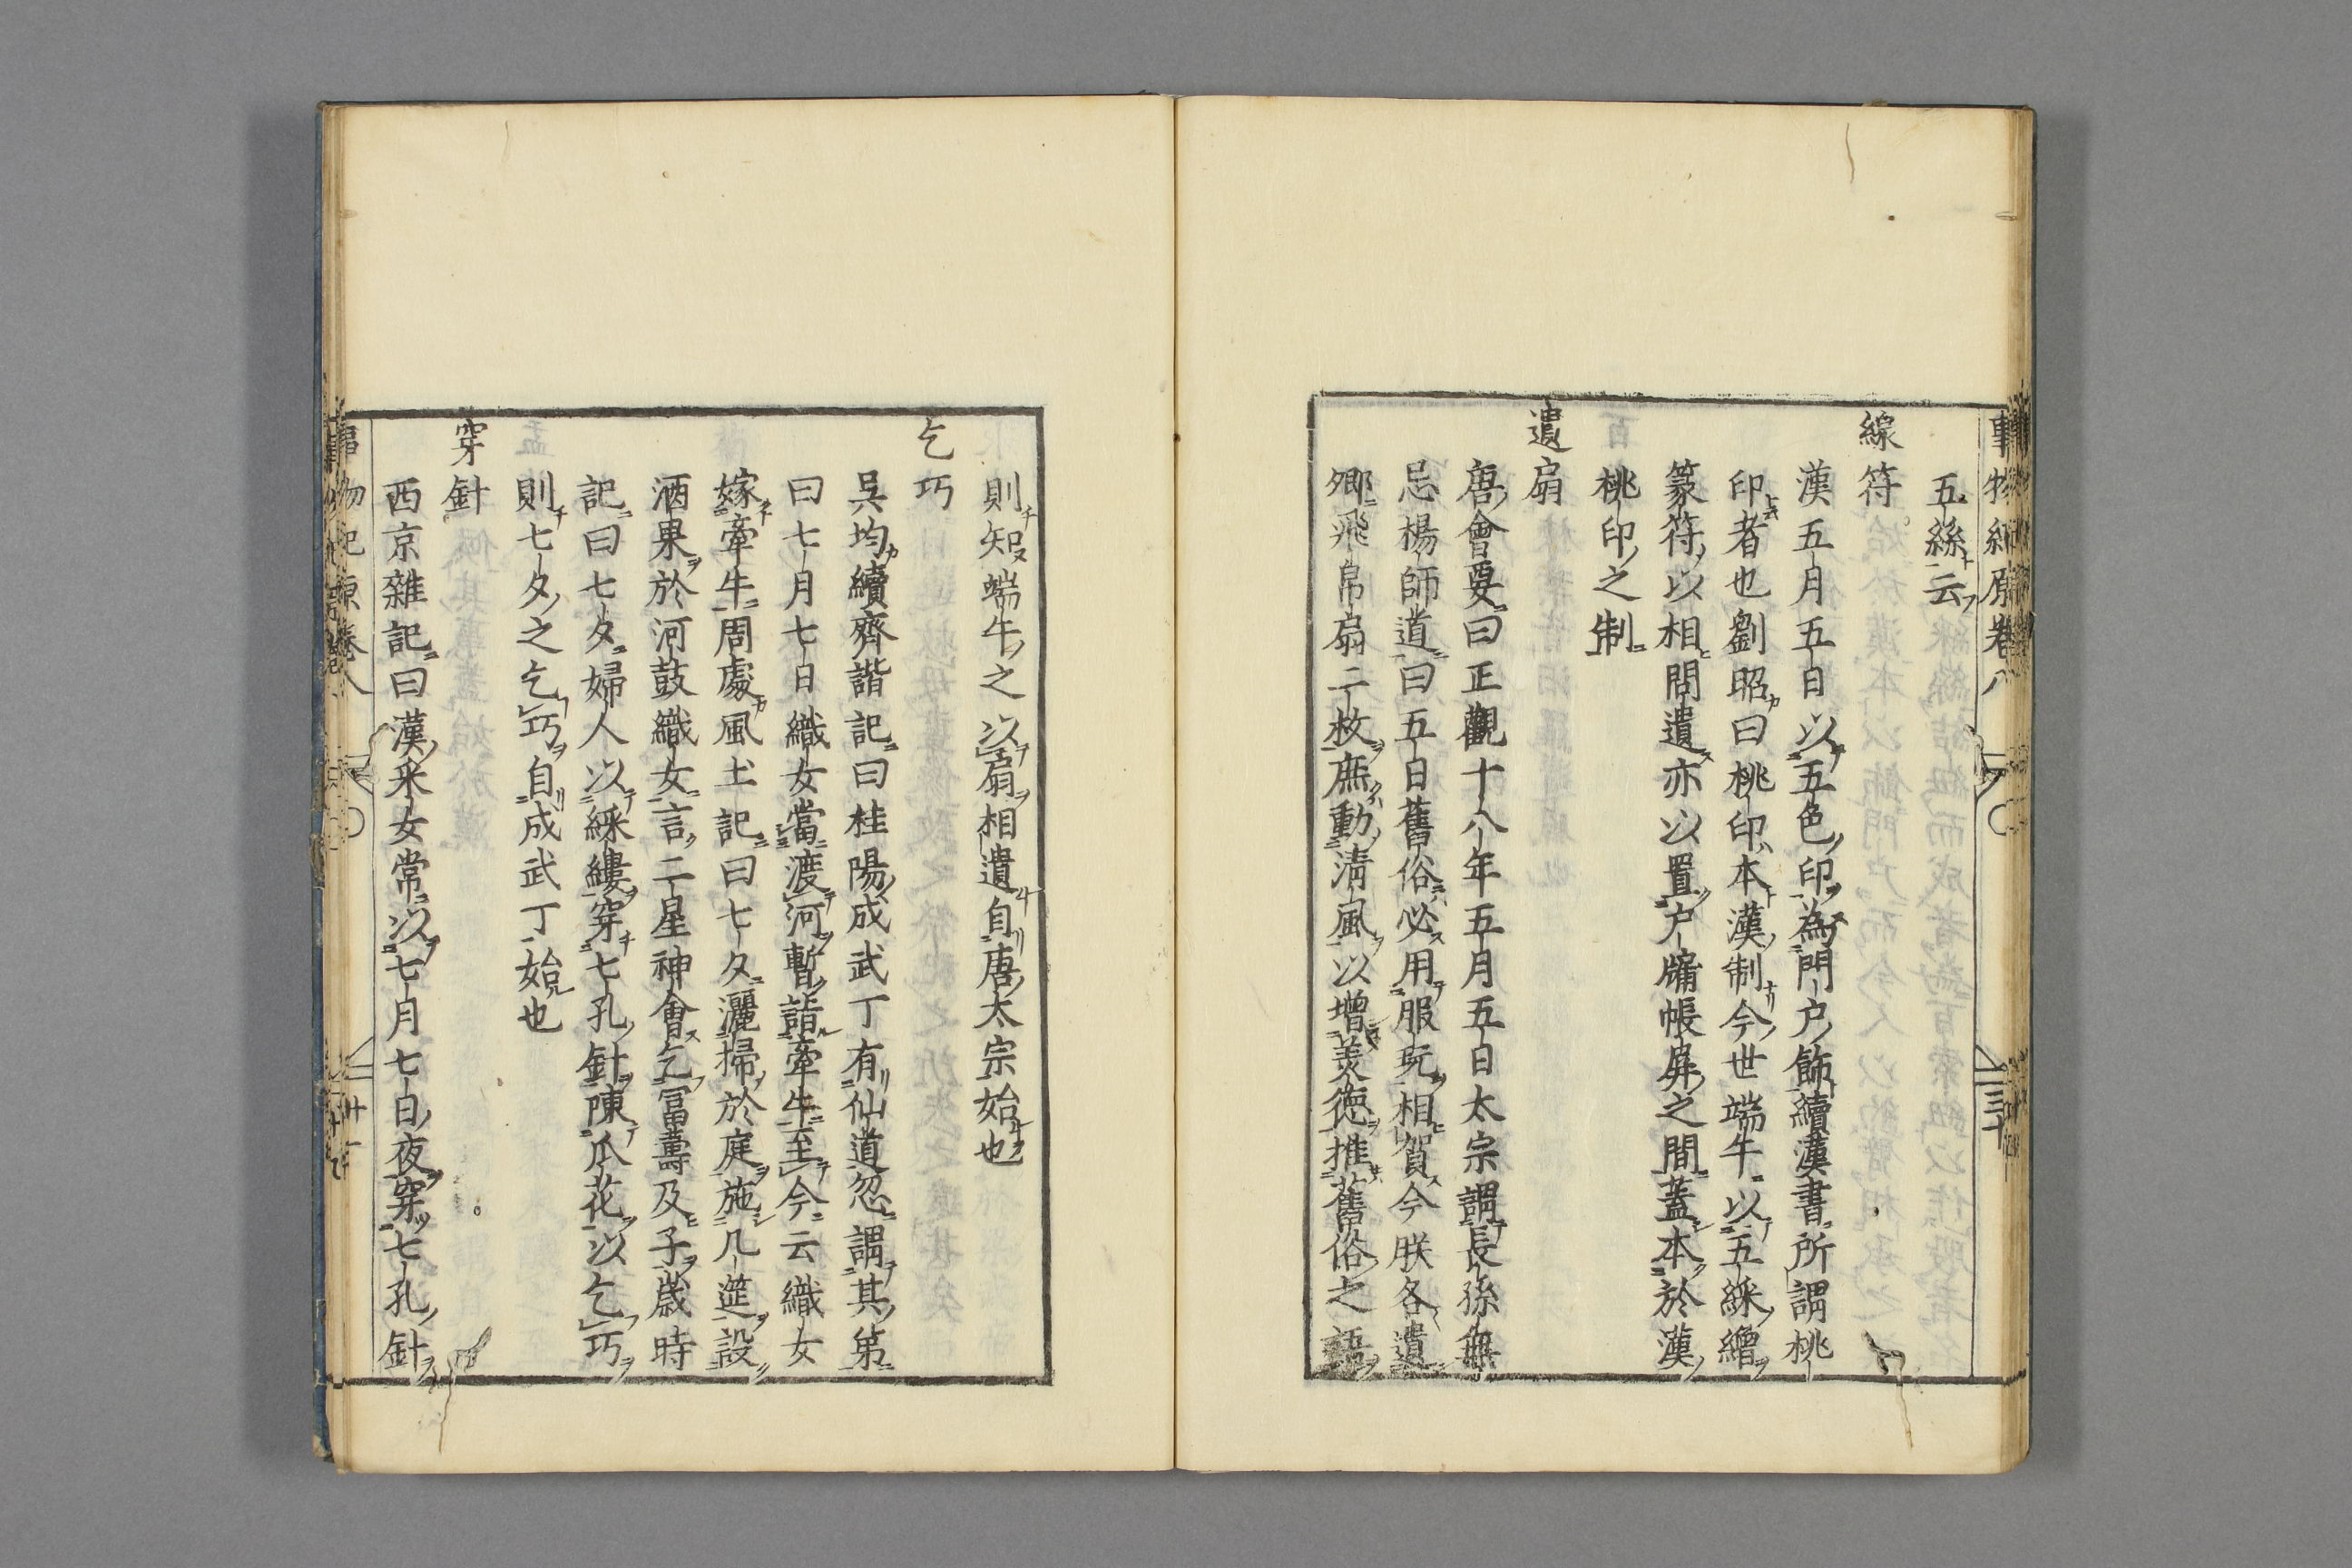 五絲云
線符
漢五月五日以五色印為門户飾續漢書所謂桃
印者也劉昭曰桃印本漢制今世端午以五綵繒
篆符以相問遺亦以置户牖帳屏之間蓋本於漢
桃印之制
遺扇
唐會要曰正觀十八年五月五日太宗謂長孫無
忌楊師道曰五日舊俗必用服玩相賀今朕各遺
卿飛帛扇二枚庶動清風以增美德推舊俗之語
則知端午之以扇相遺自唐太宗始也
乞巧
吳均續齊諧記曰桂陽成武丁有仙道忽謂其弟
曰七月七日織女當渡河暫詣牽牛至今云織女
嫁牽牛周處風土記曰七夕灑掃於庭施几筵設
酒果於河鼓織女言二星神會乞冨壽及子歳時
記曰七夕婦人以綵縷穿七孔針陳瓜花以乞巧
則七夕之乞巧自成武丁始也
穿針
西京雜記曰漢釆女常以七月七日夜穿七孔針